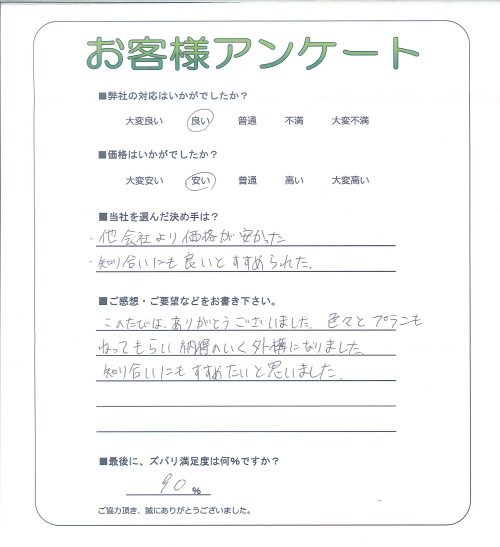 お客様アンケート
■弊社の対応はいかがでしたか?
大変良い 良い 普通 不満 大変不満
■価格はいかがでしたか?
大変安い 安い 普通 高い 大変高い
■当社を選んだ決め手は?
・他会社より価格が安かった
・知り合いにも良いとすすめられた。
■ご感想・ご要望などをお書き下さい。
このたびは、ありがとうございました。色々とプランも
ねってもらい納得のいく外構になりました。
知り合いにもすすめたいと思いました。
■最後に、ズバリ満足度は何%ですか?
90%
ご協力頂き、誠にありがとうございました。